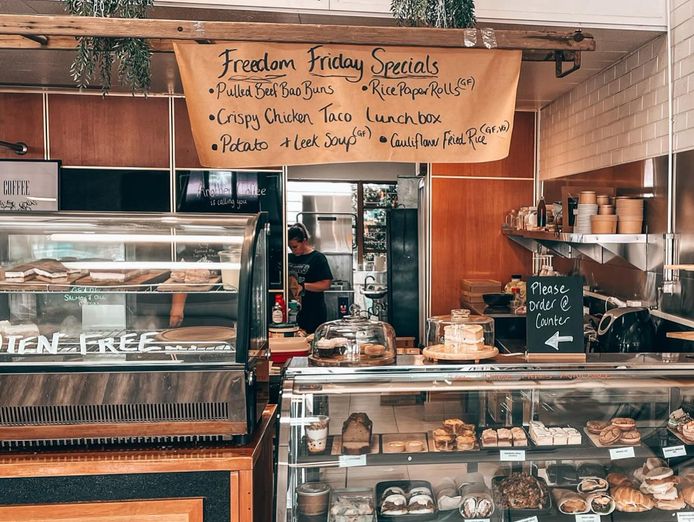 Freedom Friday Specials
• Pulled Beef Bao Buns
• Rice Paper Rolls (GF)
• Crispy Chicken Taco Lunchbox
• Potato + Leek Soup (GF)
• Cauliflower Fried Rice (GF, VG)
COFFEE
Another Coffee
is calling you
Please
Order @
Counter
TEN FREE